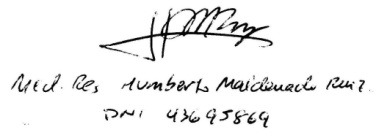 Med. Res Humberto Maldonado Ruiz.
DNI 43695869